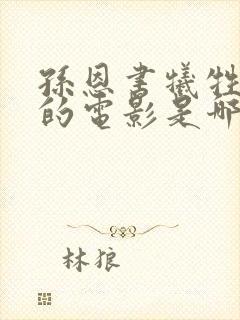 孫恩書犧牲
的電影是哪
林狼